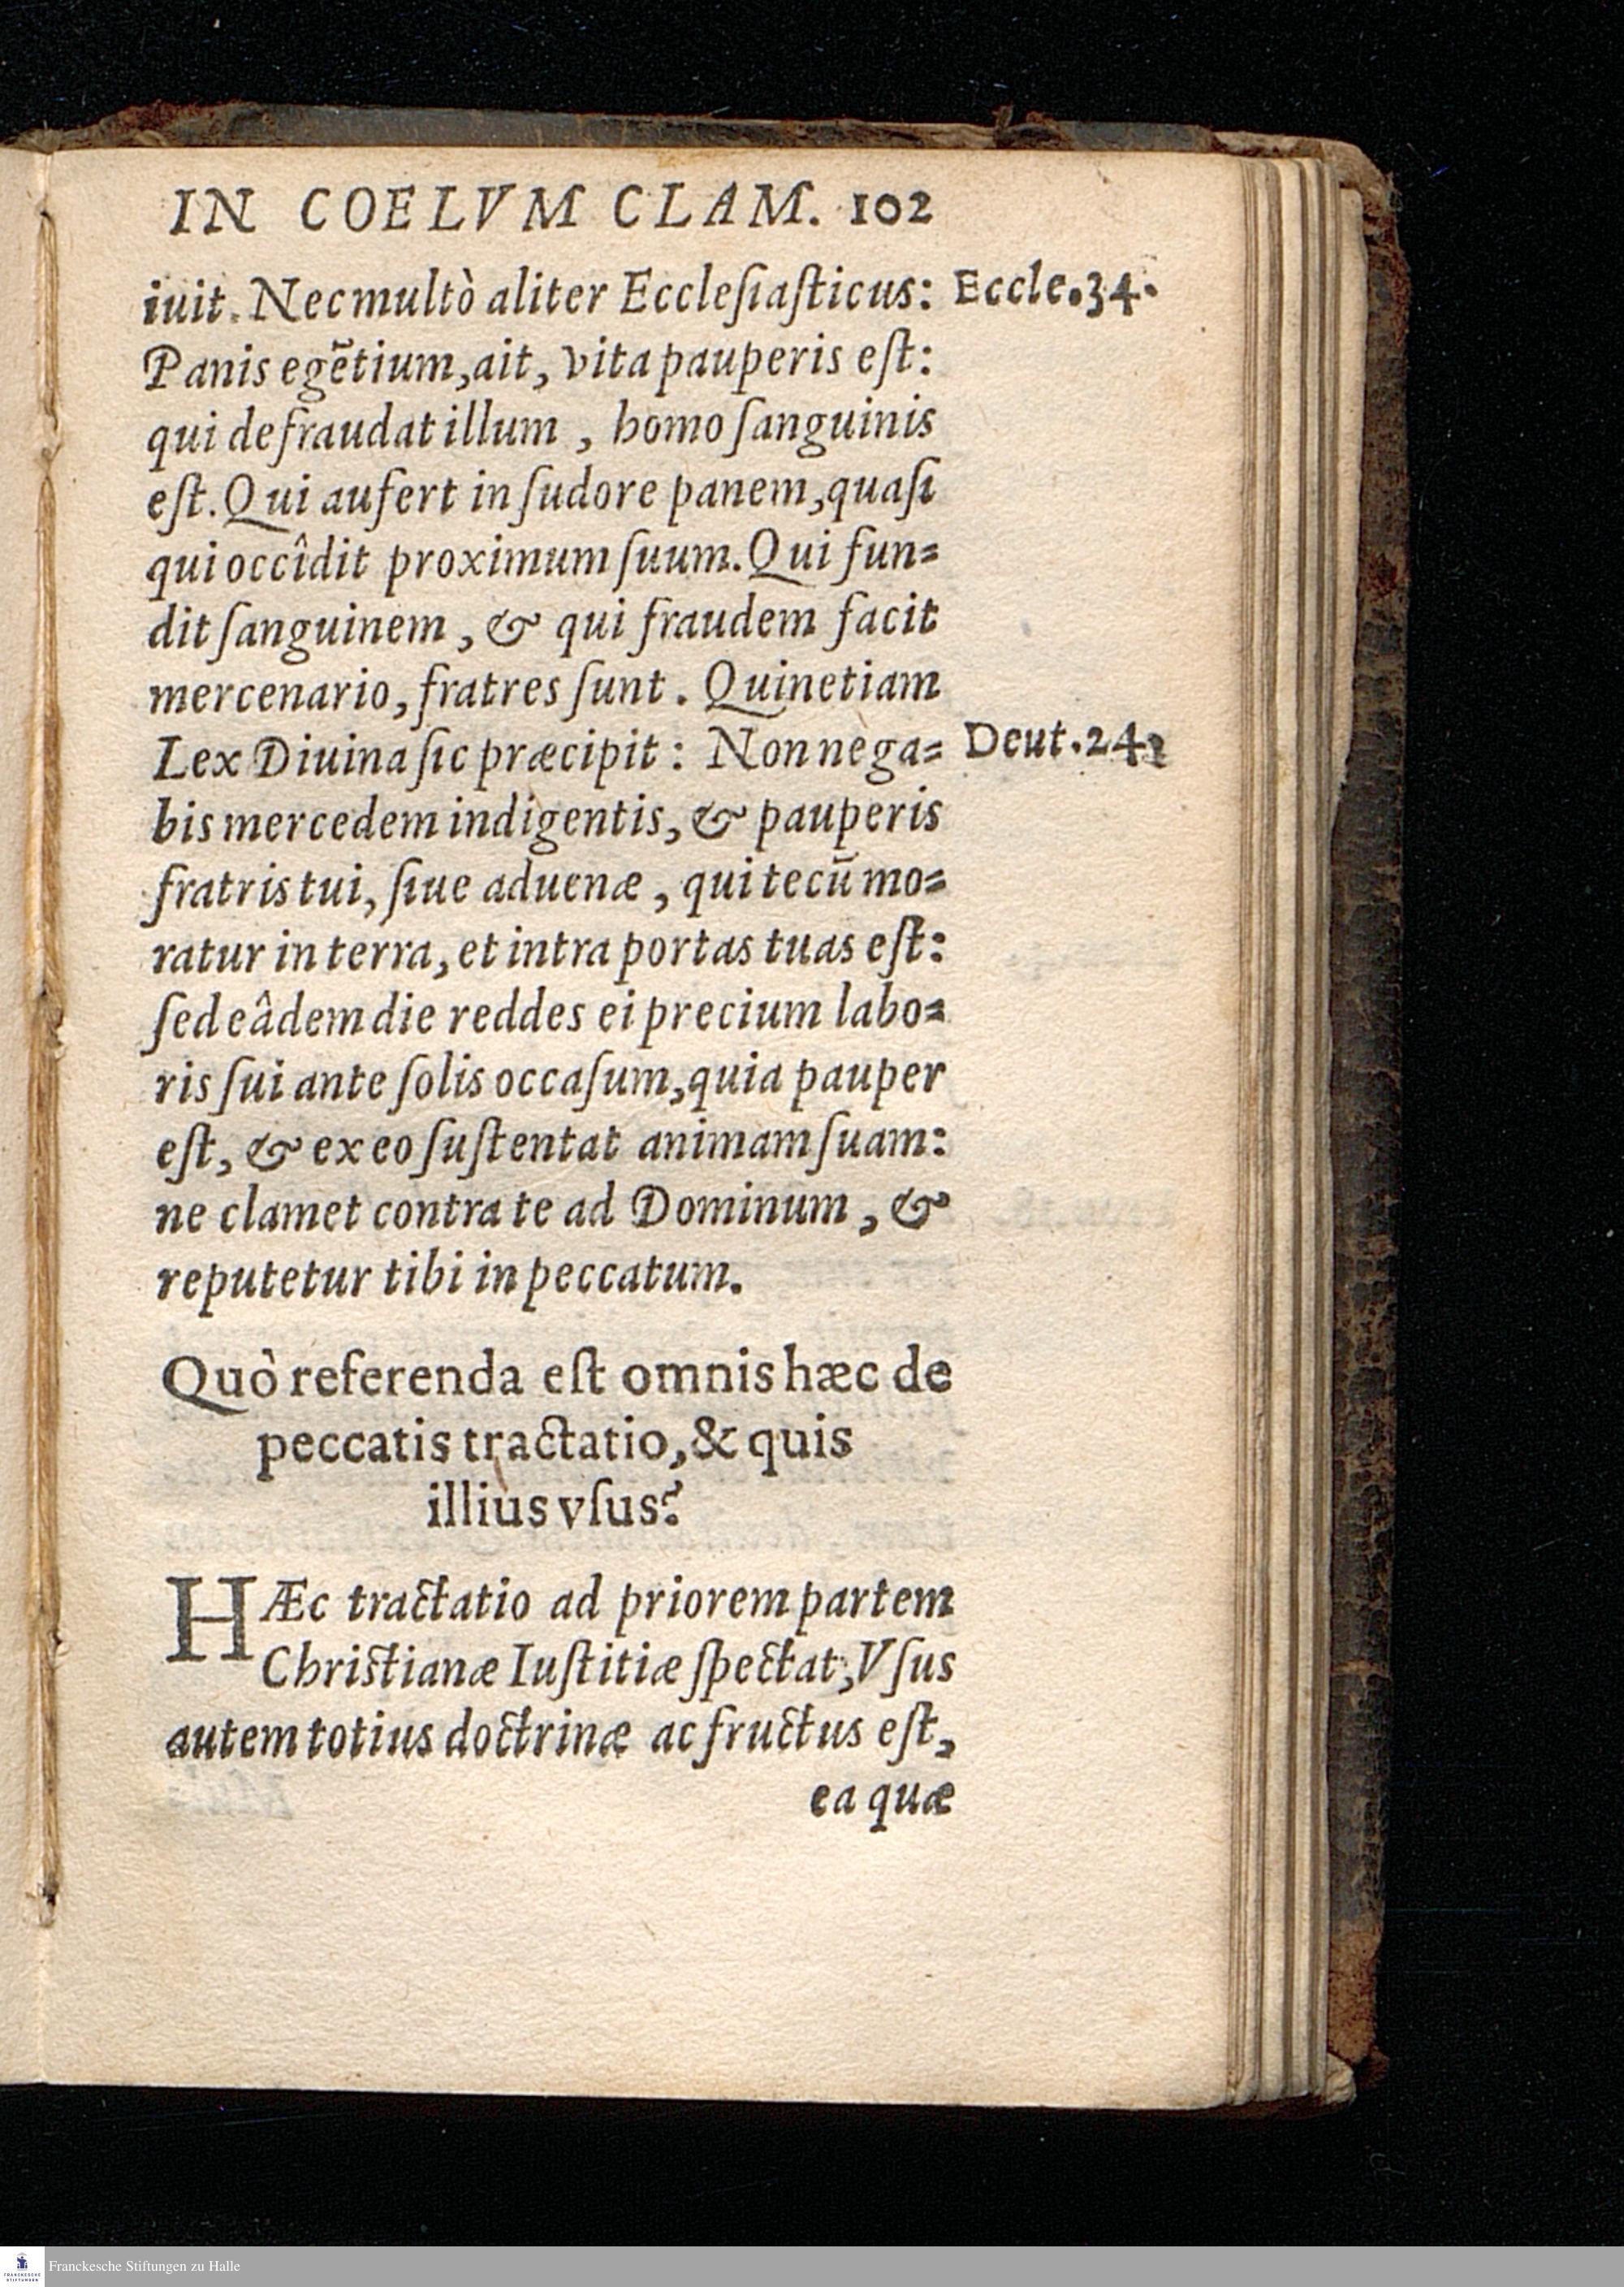 IN COELVM CLAM. 102
iuit. Nec multò aliter Eccleſiaſticus: Eccle.34.
Panis egẽtium, ait, vita pauperis eſt:
qui defraudat illum, homo ſanguinis
eſt. Qui aufert in ſudore panem, quaſi
qui occîdit proximum ſuum. Qui fun=
dit ſanguinem, & qui fraudem facit
mercenario, fratres ſunt. Quinetiam
Lex Diuina ſic præcipit: Non nega= Deut.24.
bis mercedem indigentis, & pauperis
fratris tui, ſiue aduenæ, qui tecũ mo=
ratur in terra, et intra portas tuas eſt:
ſed eâdem die reddes ei precium labo=
ris ſui ante ſolis occaſum, quia pauper
eſt, & ex eo ſuſtentat animam ſuam:
ne clamet contra te ad Dominum, &
reputetur tibi in peccatum.
Quò referenda eſt omnis hæc de
peccatis tractatio, & quis
illius vſus?
HÆc tractatio ad priorem partem
Chriſtianæ Iuſtitiæ ſpectat, Vſus
autem totius doctrinæ ac fructus eſt,
ea quæ
Franckesche Stiftungen zu Halle
FRANCKESCHE
STIFTUNGEN